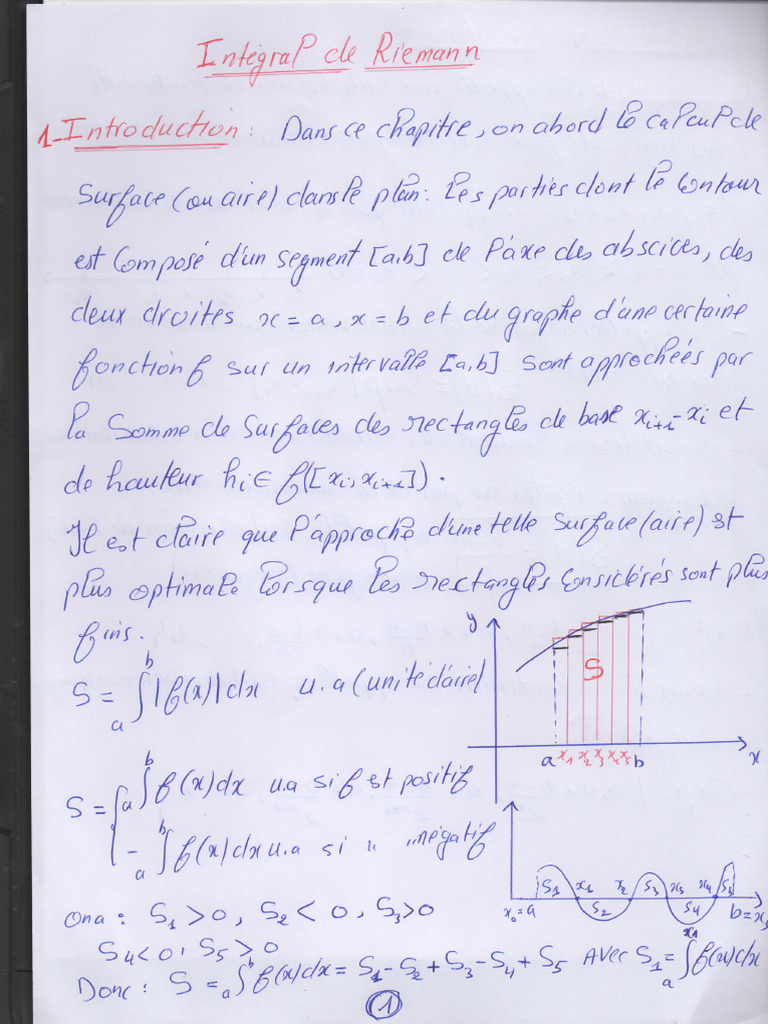 Intégral de Riemann
1-Introduction: Dans ce chapitre, on abord le calcul de
Surface (ou aire) dans le plan: Les parties dont le contour
est composé d'un segment [a,b] de l'axe des abscices, des
deux droites x = a, x = b et du graphe d'une certaine
fonction f sur un intervalle [a,b] sont approchées par
la somme de surfaces des rectangles de base xᵢ₊₁ - xᵢ et
de hauteur hᵢ ∈ f([xᵢ, xᵢ₊₁]).
Il est claire que l'approche d'une telle surface (aire) st
plus optimale lorsque les rectangles considérés sont plus
fins.
y
S
a x₁ x₂ x₃ x₄ x₅ b x
S = ∫ₐᵇ |f(x)| dx u.a (unité d'aire)
S = { ∫ₐᵇ f(x) dx u.a si f est positif
- ∫ₐᵇ f(x) dx u.a si " " négatif
S₁ x₁ x₂ S₃ x₃ x₄ S₅
x₀ = a S₂ S₄ b = x₅
Ona: S₁ > 0, S₂ < 0, S₃ > 0
S₄ < 0, S₅ > 0
Donc: S = ∫ₐᵇ f(x) dx = S₁ - S₂ + S₃ - S₄ + S₅ Avec S₁ = ∫ₐˣ¹ f(x) dx
1